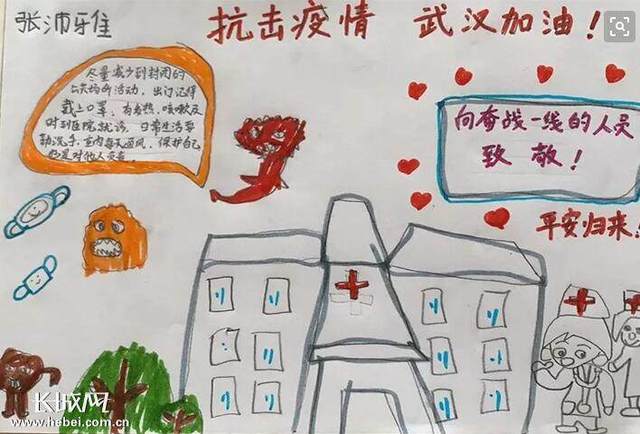 张沛雅
抗击疫情 武汉加油!
尽量减少到封闭的
公共场所活动，出门记得
戴上口罩，有发热、咳嗽及
时到医院就诊，日常生活要
勤洗手，室内每天通风，保护自己
也是对他人负责
向奋战一线的人员
致敬!
平安归来!
长城网
www.hebei.com.cn